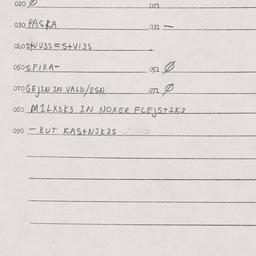 020 Ø 021
030 PASKA 031 —
040 S+VU3S = S+VI3S
050 SFIRA-
051 Ø
070 GEJ3N IN VALD/ESN 071 Ø
080 MILX3K3 IN NOXER FLEJS+IK3
090 — BUT KAS+NIK3S